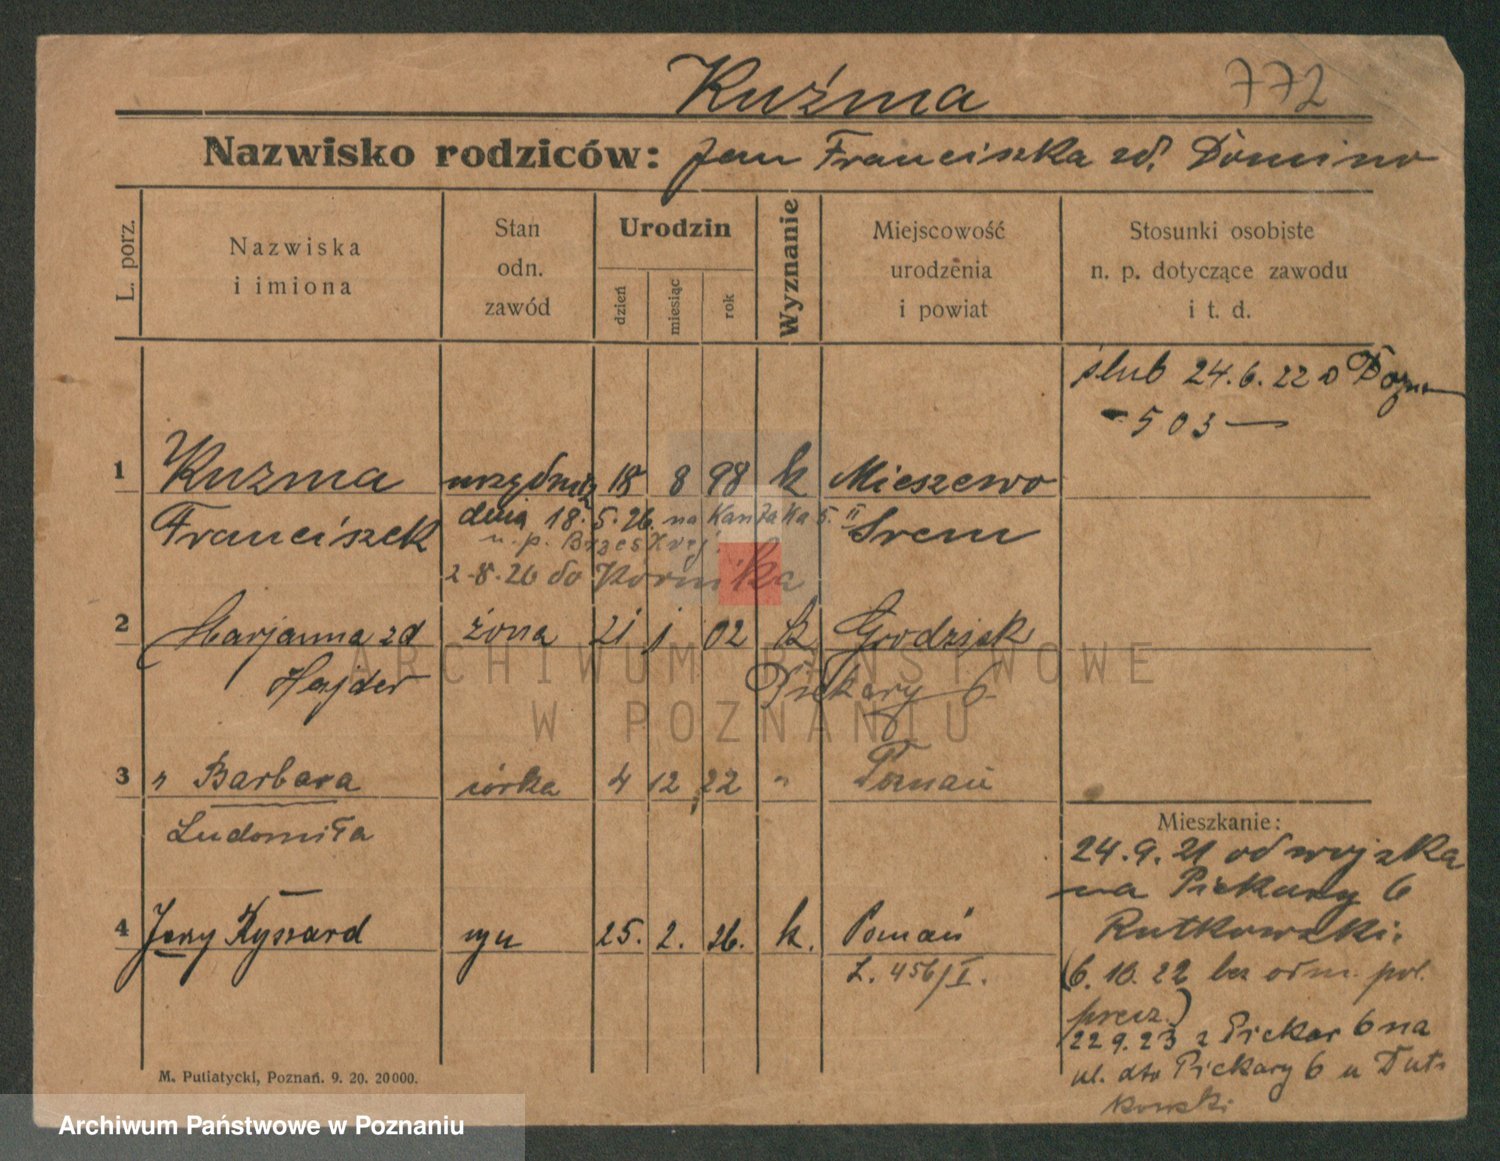 Kuźma 772
Nazwisko rodziców: Jan Franciszka zd. Domino
L. porz.
Nazwiska
i imiona
Stan
odn.
zawód
Urodzin
dzień
miesiąc
rok
Wyznanie
Miejscowość
urodzenia
i powiat
Stosunki osobiste
n. p. dotyczące zawodu
i t. d.
ślub 24.6.22 Pozn
- 503 -
1 Kuźma urzędnik 18 8 98 k Mieszewo
Franciszek dnia 18.5.26. na Kantaka 5. II Śrem
u. p. Brzeskrej.
2-8.26 do Kornika
2 Marjanna zd żona 21 1 02 k Grodzisk
Hajder Piekary 6
3 " Barbara córka 4 12 22 " Poznań
Ludomiła
Mieszkanie:
24.9.21 od wojska
na Piekary 6
Rutkowski.
4 Jerzy Ryszard syn 25. 2. 26. k. Poznań
L. 456/I.
(6.10.22 bez odm. pol.
precz.)
22 9.23 z Piekar 6 na
ul. dto Piekary 6 u Dut
kowski
M. Putiatycki, Poznań. 9. 20. 20000.
ARCHIWUM PAŃSTWOWE
W POZNANIU
Archiwum Państwowe w Poznaniu